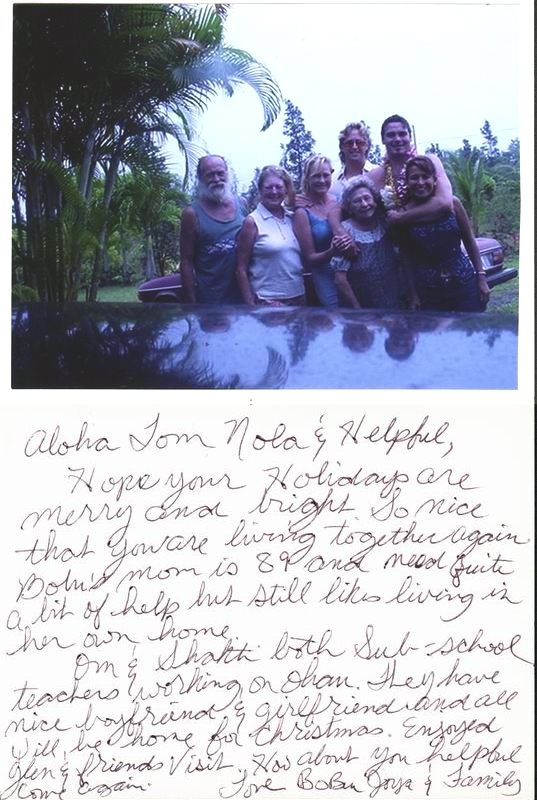 Aloha Tom Nola & Helpful,
Hope your Holidays are
merry and bright. So nice
that you are living together again
Bobu's mom is 89 and need quite
a bit of help but still likes living in
her own home
Om & Shakti both Sub-school
teachers working on Ohau. They have
nice boyfriend & girlfriend and all
will be home for Christmas. Enjoyed
glen & friends visit. How about you helpful
come again. Love BoBu Joya & Family